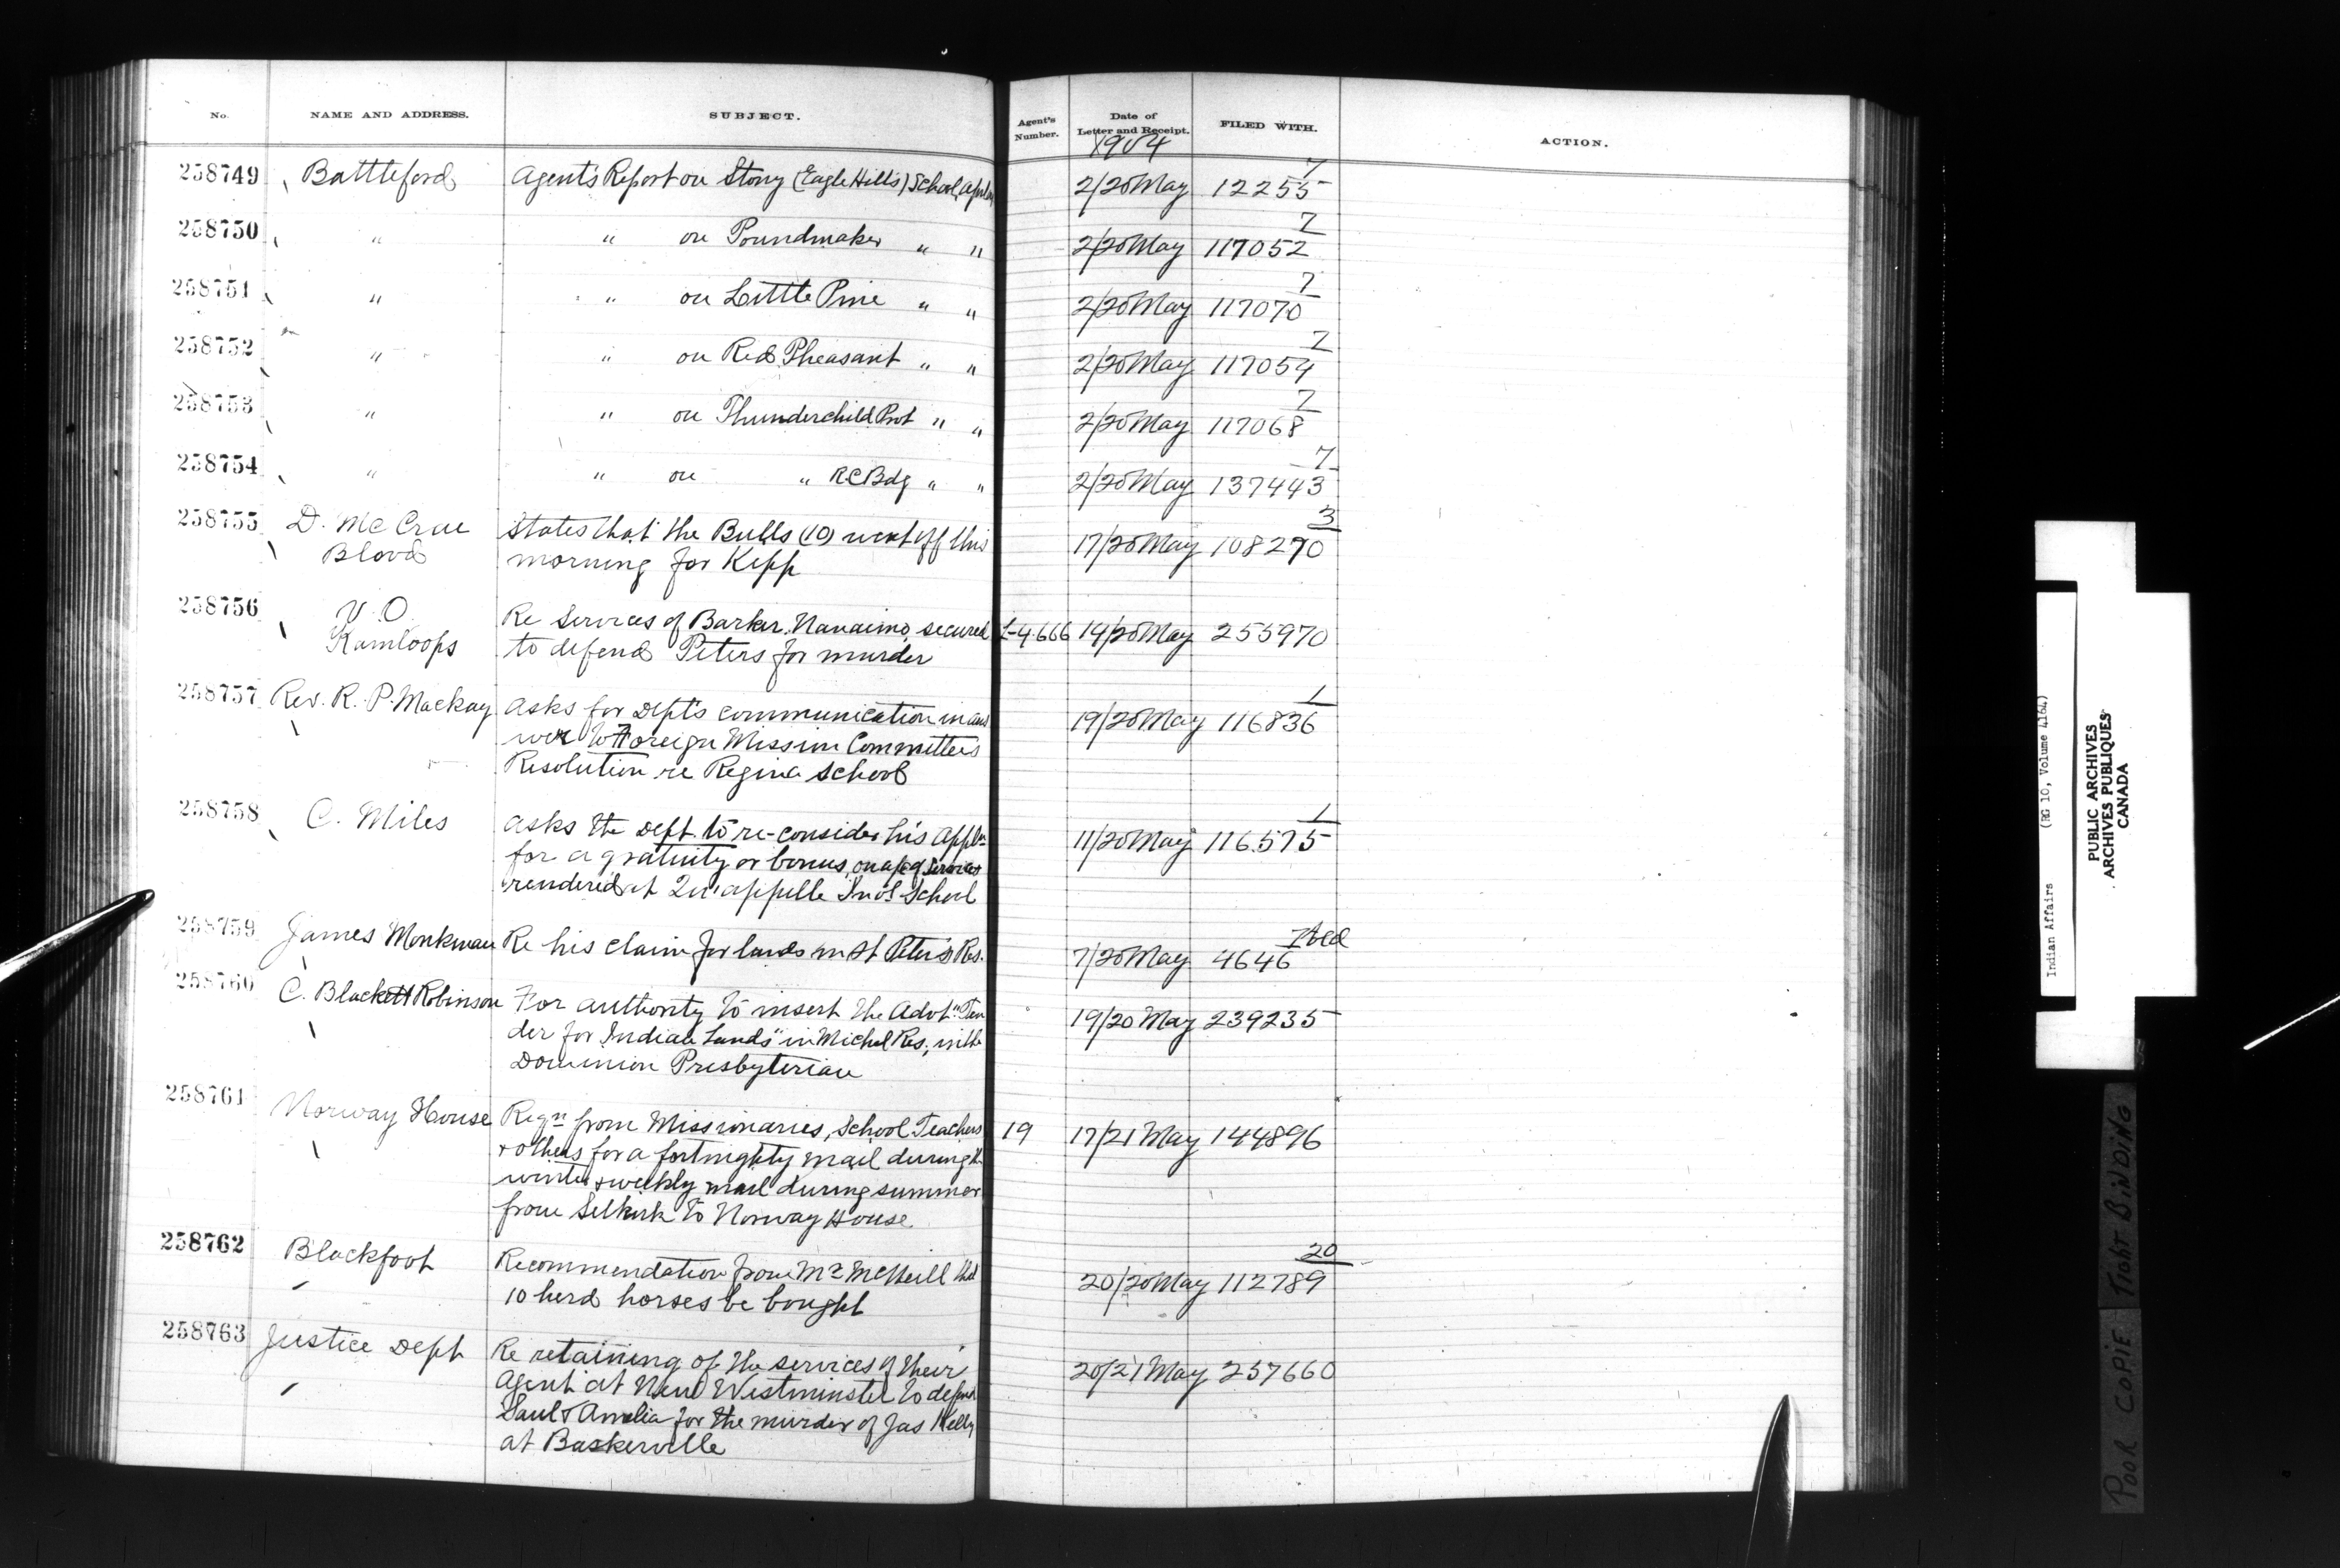 No. NAME AND ADDRESS. SUBJECT. Agent's Number. Date of Letter and Receipt. FILED WITH. ACTION.
1904
7
258749 Battleford Agent's Report on Stony (Eagle Hills) School, 2/20 May 12255
7
258750 " " on Poundmaker " " 2/20 May 117052
7
258751 " " on Little Pine " " 2/20 May 117070
7
258752 " " on Red Pheasant " " 2/20 May 117054
7
258753 " " on Thunderchild Prot " " 2/20 May 117068
7
258754 " " on " RC Bdg " " 2/20 May 137443
3
258755 D. McCrae States that the Bulls (10) went off this 17/20 May 108270
Blood morning for Kipp
258756 V.O. Re Services of Barker, Nanaimo, secured L-4.666 14/20 May 255970
Kamloops to defend Peters for murder
1
258757 Rev. R. P. Mackay Asks for Dept's communication in ans 19/20 May 116836
wer to Foreign Mission Committee's
Resolution re Regina School
1
258758 C. Miles Asks the Dept. to re-consider his Appln 11/20 May 116575
for a gratuity or bonus, on a/c of services
rendered at Qu'appelle Ind'l School
258759 James Monkman Re his claim for lands in St Peter's Res. 7/20 May 4646
258760 C. Blackett Robinson For authority to insert the Advt "Ten 19/20 May 239235
der for Indian Lands" in Michel Res., in the
Dominion Presbyterian
258761 Norway House Reqn from Missionaries, School Teachers 19 17/21 May 144896
+ others for a fortnightly mail during the
winter + weekly mail during summer
from Selkirk to Norway House
20
258762 Blackfoot Recommendation from Mr McNeill that 20/20 May 112789
10 herd horses be bought
258763 Justice Dept Re retaining of the services of their 20/21 May 257660
Agent at New Westminster to defend
Paul + Amelia for the murder of Jas Kelly
at Baskerville
Indian Affairs (RG 10, Volume 4164)
PUBLIC ARCHIVES
ARCHIVES PUBLIQUES
CANADA
POOR COPIE TIGHT BINDING